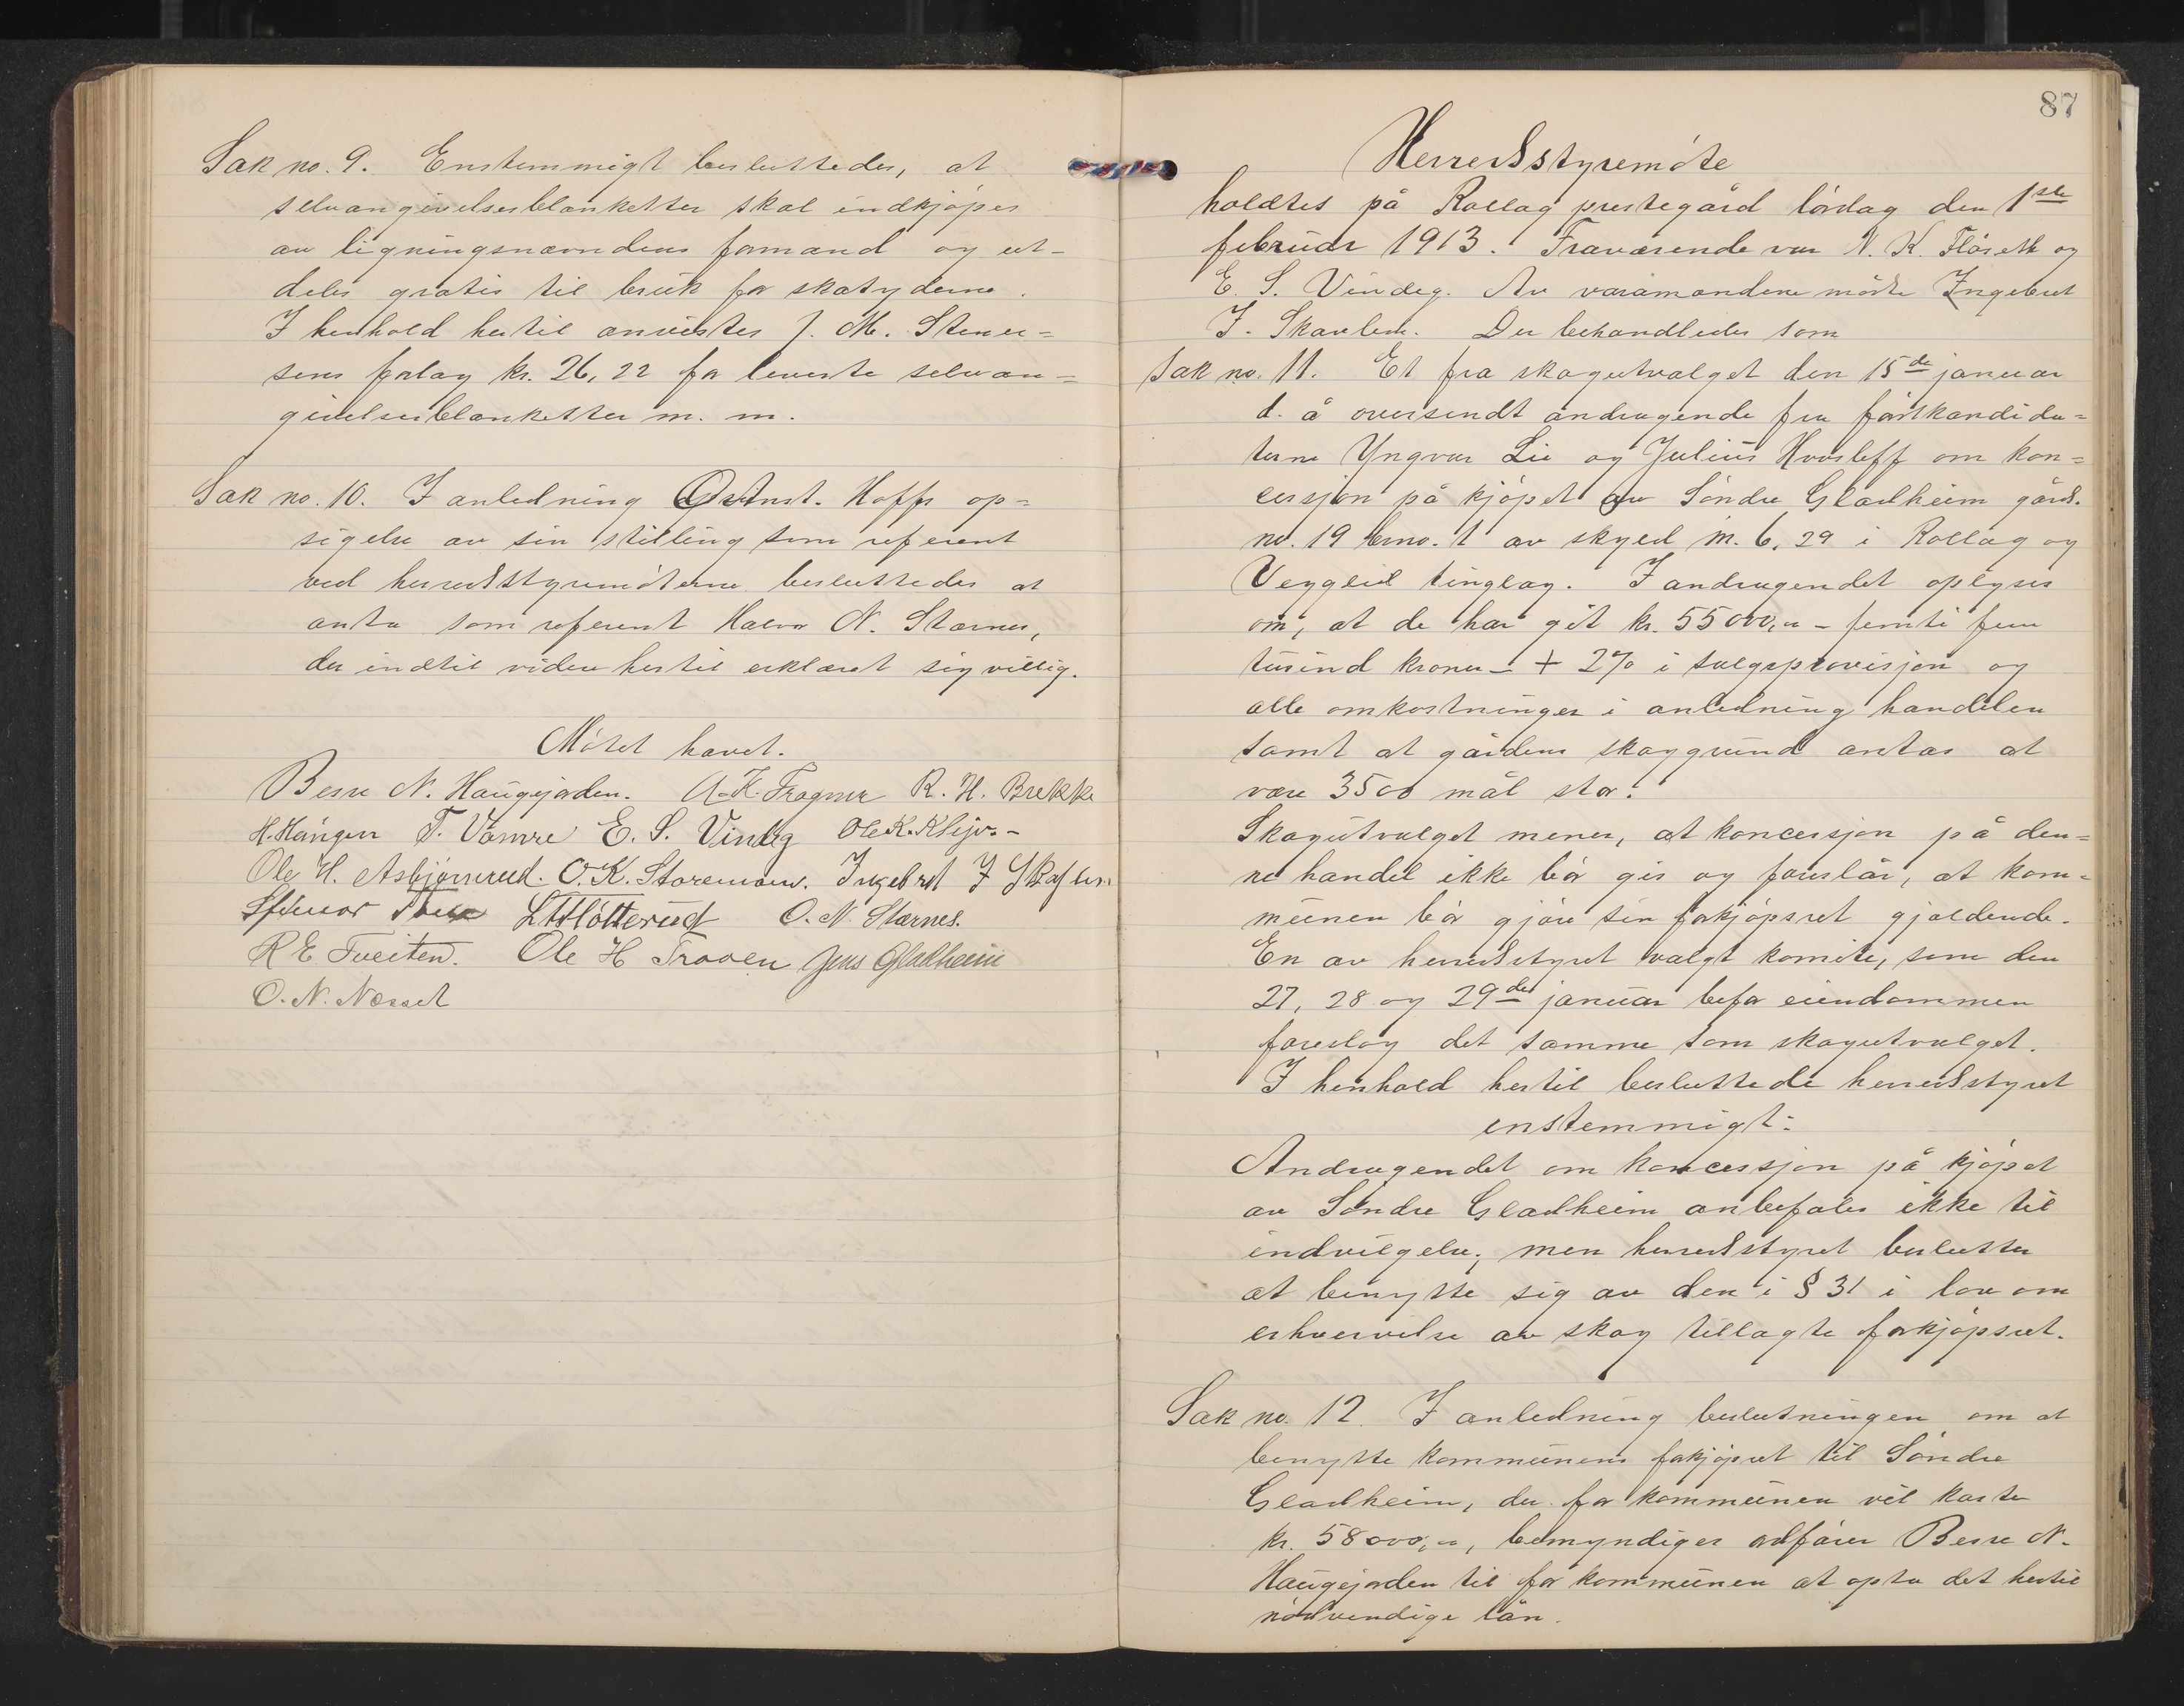 Sak no. 9. Enstemmigt besluttedes, at
selvangivelsesblanketter skal indkjøpes
av ligningsnævndens formand og ut-
deles gratis til bruk for skatyderne.
I henhold hertil anvistes J. M. Stener=
sens forlag kr. 26,22 for leverte selvan=
givelsesblanketter m. m.
Sak no. 10. I anledning Hoffs op=
sigelse av sin stilling som referent
ved herredsstyremøterne besluttedes at
anta som referent Halvor N. Stærnes,
der indtil videre hertil erklæret sig villig.
Møtet hævet.
Besse N. Haugejorden. A. K. Fragner R. H. Brekke
H. Haugen T. Vamre E. S. Vindeg Ole K. Kleiv.-
Ole H. Asbjørnrud. O. K. Storemoen. Ingebret J Skaflem
L H Slötterud O. N. Stærnes.
R E Tveiten. Ole H Traaen Jens Gladheim
O. N. Næsset
87
Herredsstyremøte
holdtes på Rollag prestegård lørdag den 1ste
februar 1913. Fraværende var N. K. Fløseth og
E. S. Vindeg. Av varamændene møtte Ingebret
J. Skavlem. Der behandledes som
Sak no. 11. Et fra skogutvalget den 15de januar
d. å oversendt andragende fra forstkandida=
terne Yngvar Lie og Julius Hvosleff om kon=
cessjon på kjøpet av Søndre Gladheim gårds.
no. 19 brno. 1 av skyld m. 6,29 i Rollag og
Veggli tinglag. I andragendet oplyses
om, at de har git kr. 55000,00 - femti fem
tusind kroner - + 2% i salgsprovisjon og
alle omkostninger i anledning handelen
samt at gårdens skoggrund antas at
være 3500 mål stor.
Skogutvalget mener, at koncessjon på den=
ne handel ikke bør gis og foreslår, at kom=
munen bør gjøre sin forkjøpsret gjældende.
En av herredsstyret valgt komite, som den
27, 28 og 29de januar befor eiendommen
foreslog det samme som skogutvalget.
I henhold hertil besluttede herredsstyret
enstemmigt:
Andragendet om koncessjon på kjøpet
av Søndre Gladheim anbefales ikke til
indvilgelse, men herredsstyret beslutter
at benytte sig av den i § 31 i lov om
erhvervelse av skog tillagte forkjøpsret.
Sak no. 12. I anledning beslutningen om at
benytte kommunens forkjøpsret til Søndre
Gladheim, der for kommunen vil koste
kr. 58000,00, bemyndiges ordfører Besse N.
Haugejorden til for kommunen at opta det hertil
nødvendige lån.